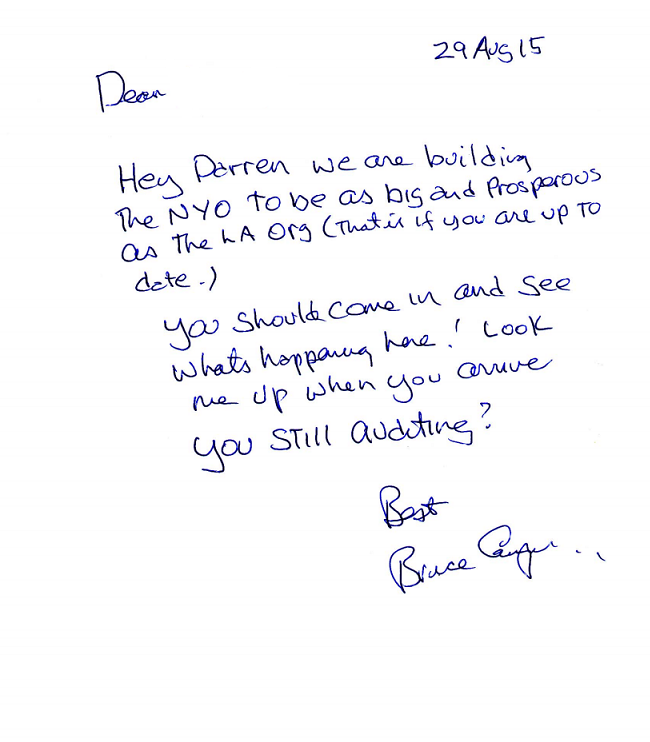 29 Aug 15
Dear
Hey Darren we are building
The NYO to be as big and Prosperous
as The LA Org (That is if you are up TO
date.)
You should come in and see
whats happening here! Look
me up when you arrive
You STill auditing?
Best
Bruce